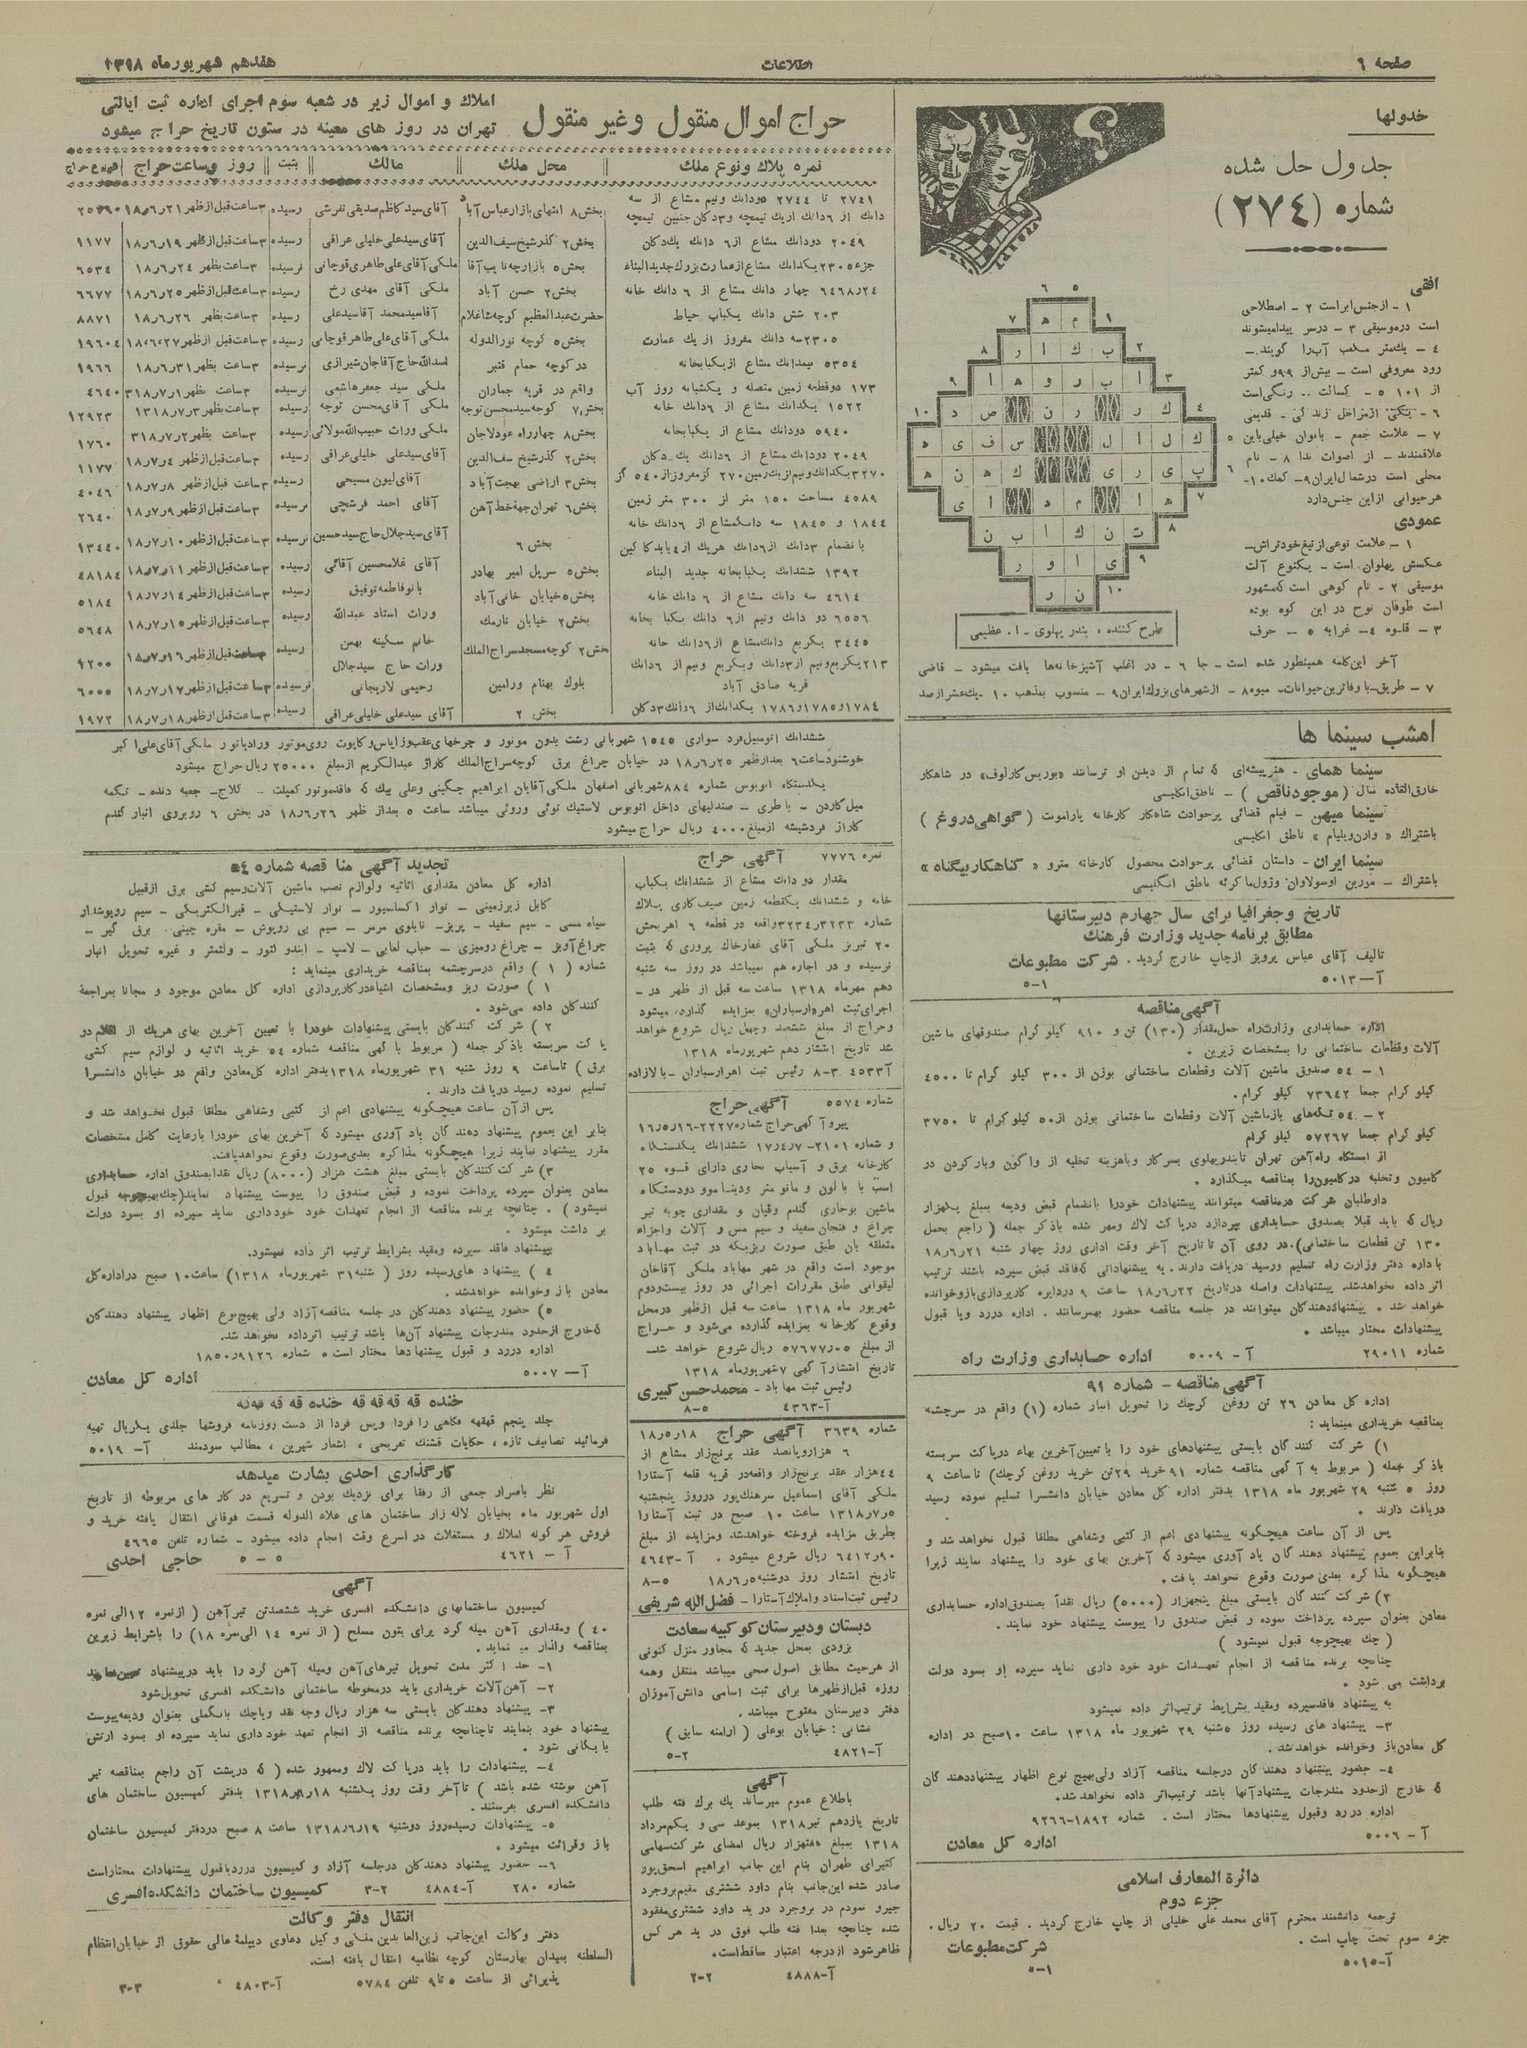 صفحه ٦
اطلاعات
هفدهم شهریورماه ۱۳۱۸
خدولها
جدول حل شده
شماره (٢٧٤)
افقی
۱ - ازجنس ابراست ۲ - اصطلاحی
است درموسیقی ۳ - درسر پیدامیشوند
٤ - یك‌متر مکعب آب‌را گویند -
رود معروفی است - بیش از ۹۹و کمتر
از ۱۰۱ ٥ - کسالت .. رنگی‌است
٦ - یکی ازمراحل زندگی - قدیمی
۷ - علامت جمع - بانوان خیلی‌باین
علاقمندند - از اصوات ندا ۸ - نام
محلی است درشمال‌ایران ۹ - کمك ۱۰ -
هرحیوانی ازاین جنس‌دارد
عمودی
۱ - علامت نوعی ازتیغ خودتراش -
عکسش پهلوان است - یکنوع آلت
موسیقی ۲ - نام کوهی است که‌مشهور
است طوفان نوح در این کوه بوده
۳ - قلوه ٤ - غرابه ٥ - حرف
آخر این‌کلمه همینطور شده است - جا ٦ - در اغلب آشپزخانه‌ها یافت میشود - قاضی
۷ - طریق - باوفاترین حیوانات - میوه ۸ - ازشهرهای بزرك ایران ۹ - منسوب بمذهب ۱۰ - یك‌عشرازصد
طرح کننده ، بندر پهلوی - ا. عظیمی
امشب سینما ها
سینما همای - هنرپیشه‌ای که تمام از دیدن او ترسانند «بوریس کارلوف» در شاهکار
خارق‌العاده سال ( موجود ناقص ) - ناطق انگلیسی
سینما میهن - فیلم قضائی پرحوادث شاه‌کار کارخانه پاراموت ( گواهی دروغ )
باشتراك « وارن‌ویلیام » ناطق انگلیسی
سینما ایران - داستان قضائی پرحوادث محصول کارخانه مترو « گناهکار بیگناه »
باشتراك - مورین اوسولاوان وژول‌ماکرئه ناطق انگلیسی
تاریخ و جغرافیا برای سال چهارم دبیرستانها
مطابق برنامه جدید وزارت فرهنك
تالیف آقای عباس پرویز ازچاپ خارج گردید . شرکت مطبوعات
آ—٥٠١٣ ١-٥
آگهی مناقصه
اداره حسابداری وزارت‌راه حمل‌مقدار (۱۳۰) تن و ۹۱۰ کیلو گرام صندوقهای ماشین
آلات وقطعات ساختمانی را بمشخصات زیرین .
۱ - ٥٤ صندوق ماشین آلات وقطعات ساختمانی بوزن از ۳۰۰ کیلو گرام تا ٤٥٠٠
کیلو گرام جمعا ٧٣٦٤٢ کیلو گرام.
۲ - ٥٤ تکه‌های بازماشین آلات وقطعات ساختمانی بوزن از ٥٠ کیلو گرام تا ٣٧٥٠
کیلو گرام جمعا ٥٧٢٦٧ کیلو گرام
از ایستگاه راه‌آهن تهران تابندرپهلوی بسرکار وباهزینه تخلیه از واگون وبارکردن در
کامیون وتخلیه درکامیون‌را بمناقصه میگذارد .
داوطلبان شرکت درمناقصه میتوانند پیشنهادات خودرا بانضمام قبض ودیعه بمبلغ یکهزار
ریال که باید قبلا بصندوق حسابداری بپردازد درپاکت لاك ومهر شده باذکر جمله ( راجع بحمل
۱۳۰ تن قطعات ساختمانی).در روی آن تاتاریخ آخر وقت اداری روز چهار شنبه ۱۸٫٦٫۲۱
باداره دفتر وزارت راه تسلیم ورسید دریافت دارند. به پیشنهاداتی که‌فاقد قبض سپرده باشند ترتیب
اثر داده نخواهدشد. پیشنهادات واصله درتاریخ ۱۸٫٦٫۲۲ ساعت ۹ دردایره کارپردازی بازوخوانده
خواهد شد . پیشنهاددهندگان میتوانند در جلسه مناقصه حضور بهمرسانند . اداره دررد ویا قبول
پیشنهادات مختار میباشد .
شماره ۲۹۰۱۱ آ - ٥٠٠٩ اداره حسابداری وزارت راه
آگهی مناقصه - شماره ۹۱
اداره کل معادن ٢٦ تن روغن کرچك را تحویل انبار شماره (۱) واقع در سرچشمه
بمناقصه خریداری مینماید :
۱) شرکت کنندگان بایستی پیشنهادهای خود را باتعیین آخرین بهاء درپاکت سربسته
باذکر جمله ( مربوط به آگهی مناقصه شماره ۹۱ خرید ۲۹تن خرید روغن کرچك) تاساعت ۹
روز ٥ شنبه ۲۹ شهریور ماه ۱۳۱۸ بدفتر اداره کل معادن خیابان دانشسرا تسلیم نموده رسید
دریافت دارند .
پس از آن ساعت هیچگونه پیشنهادی اعم از کتبی وشفاهی مطلقا قبول نخواهد شد و
بنابراین بعموم پیشنهاد دهند گان یاد آوری میشود که آخرین بهای خود را پیشنهاد نمایند زیرا
هیچگونه مذاکره بعدی صورت وقوع نخواهد یافت .
۲) شرکت کنندگان بایستی مبلغ پنجهزار (٥٠٠٠) ریال نقداً بصندوق‌اداره حسابداری
معادن بعنوان سپرده پرداخت نموده و قبض صندوق را پیوست پیشنهاد خود نمایند .
( چك بهیچوجه قبول نمیشود )
چنانچه برنده مناقصه از انجام تعهدات خود خود داری نماید سپرده او بسود دولت
برداشت می شود .
به پیشنهاد فاقدسپرده ومقید بشرایط ترتیب‌اثر داده نمیشود
۳ - پیشنهاد های رسیده روز ٥شنبه ۲۹ شهریور ماه ۱۳۱۸ ساعت ۱۰صبح در اداره
کل معادن‌باز وخوانده خواهدشد.
٤ - حضور پیشنهاد دهند گان درجلسه مناقصه آزاد ولی‌بهیچ نوع اظهار پیشنهاددهند گان
که خارج ازحدود مندرجات پیشنهادآنها باشد ترتیب‌اثر داده نخواهدشد.
اداره دررد وقبول پیشنهادها مختار است . شماره ۱۸۹۲-۹۲٦٦
آ - ٥٠٠٦ اداره کل معادن
دائرة المعارف اسلامی
جزء دوم
ترجمه دانشمند محترم آقای محمد علی خلیلی از چاپ خارج گردید . قیمت ۲۰ ریال .
جزء سوم تحت چاپ است . شرکت مطبوعات
آ-٥٠١٥ ١-٥
حراج اموال منقول وغیر منقول
املاك و اموال زیر در شعبه سوم اجرای اداره ثبت ایالتی
تهران در روز های معینه در ستون تاریخ حراج میشود
نمره پلاك ونوع ملك محل ملك مالك ثبت روز وساعت حراج
٢٧٤١ تا ٢٧٤٤ ٥دودانك ونیم مشاع از سه
دانك از ٦دانك ازیك تیمچه و۳دکان جنبین تیمچه بخش ۸ انتهای بازارعباس آباد آقای سیدکاظم‌صدیقی تفرشی رسیده ۳ساعت‌قبل‌ازظهر ۱۸٫٦٫۲۱
۲۰٤۹ دودانك مشاع از٦ دانك یك‌دکان بخش ۲ گذرشیخ سیف‌الدین آقای‌سیدعلی خلیلی عراقی رسیده ۳ساعت‌قبل‌ازظهر ۱۸٫٦٫۱۹ ۱۱۷۷
جزء ۲۳۰٥ یکدانك مشاع ازعمارت‌بزرك جدیدالبناء بخش ٥ بازارچه نایب آقا ملکی آقای علی طاهری قوچانی نرسیده ۳ساعت بظهر ۱۸٫٦٫۲٤ ٦٥٣٤
٦٤٦٨٫٢٤ چهار دانك مشاع از ٦ دانك خانه بخش ۲ حسن آباد ملکی آقای مهدی رخ رسیده ۳ساعت‌قبل‌ازظهر ۱۸٫٦٫۲٥ ٦٦٧٧
۲۰۳ شش دانك یکباب حیاط حضرت عبدالعظیم کوچه شاغلام آقاسیدمحمد آقاسیدعلی رسیده ۳ساعت بظهر ۱۸٫٦٫۲٦ ۸۸۷۱
۲۳۰٥سه دانك مفروز از یك عمارت بخش ٥ کوچه نورالدوله ملکی‌آقای‌علی طاهرقوچانی رسیده ۳ساعت‌قبل‌ازظهر ۱۸٫٦٫۲۷ ۱۹٦۰٤
٥٣٥٤ نیمدانك مشاع ازیکبابخانه در کوچه حمام قنبر اسدالله حاج آقاجان شیرازی نرسیده ۳ساعت بظهر ۱۸٫٦٫۳۱ ۱۹٦٦
۱۷۳ دوقطعه زمین متصله و یکشبانه روز آب واقع در قریه جماران ملکی سید جعفرهاشمی نرسیده ۳ساعت بظهر ۳۱۸٫۷٫۱ ٤٦٤٠
۱٥۲۲ یکدانك مشاع از ٦دانك خانه بخش ۷ کوچه‌سیدمحسن توجه ملکی آقای‌محسن توجه رسیده ۳ساعت بظهر ۱۳۱۸٫۷٫۳ ۱۲۹۲۳
٥٩٤٠ دودانك مشاع از یکبابخانه بخش ۸ چهارراه عودلاجان ملکی وراث حبیب‌الله‌مولائی رسیده ۳ساعت بظهر ۳۱۸٫۷٫۲ ۱۷٦۰
۲۰٤۹ دودانك مشاع از ٦دانك یك دکان بخش ۲ گذرشیخ سف‌الدین آقای‌سیدعلی خلیلی‌عراقی رسیده ۳ساعت‌قبل‌ازظهر ۱۸٫۷٫٤ ۱۱۷۷
۳۲۷۰یکدانك‌ونیم‌ازیك‌زمین ۲۷۰ گزمفرورازه ٥٤٠ گز بخش ۳ اراضی بهجت‌آباد آقای‌لیون مسیحی رسیده ۳ساعت قبل ازظهر ۱۸٫۷٫۸ ٤٠٤٦
٤٥٨٩ مساحت ۱٥۰ متر از ۳۰۰ متر زمین بخش ٦ تهران جهة خط آهن آقای احمد فرشچی نرسیده ۳ساعت‌قبل‌ازظهر ۱۸٫۷٫۹ ٢٦٤٠
۱۸٤٤ و ۱۸٤٥ سه دانگ‌مشاع از ٦دانك خانه
با نضمام ۳دانك از٦دانك هریك از٤بابدکاکین بخش ٦ آقای‌سیدجلال‌حاج‌سیدحسین نرسیده ۳ساعت‌قبل‌ازظهر ۱۸٫۷٫۱۰ ۱۳٤٤۰
۱۳۹۲ ششدانك یکبابخانه جدید البناء بخش ٥ سرپل امیر بهادر آقای غلامحسین آقائی رسیده ۳ساعت‌قبل‌ازظهر ۱۸٫۷٫۱۱ ٤٨١٨٤
٤٦١٤ سه دانك مشاع از ٦ دانك خانه بخش ٥ خیابان خانی‌آباد بانوفاطمه‌توفیق رسیده ۳ساعت‌قبل‌ازظهر ۱۸٫۷٫۱٤ ٥١٨٤
٦٥٥٦ دو دانك ونیم از ٦دانك یکبا بخانه بخش ۲ خیابان نارمك وراث استاد عبدالله رسیده ۳ساعت‌قبل‌ازظهر ۱۸٫۷٫۱٥ ٥٦٤٨
٣٤٤٥ یکربع دانك‌مشاع از٦دانك خانه بخش ۲ کوچه‌مسجدسراج‌الملك خانم سکینه بهمن رسیده ۱۸٫۷٫۱٦ ۹۲۰۰
۲۱۳یکربع‌ونیم از۳دانك ویکربع ونیم از ٦دانك
قریه صادق آباد بلوك بهنام ورامین وراث حاج سیدجلال
رحیمی لاریجانی نرسیده ۳ساعت‌قبل‌ازظهر ۱۸٫۷٫۱۷ ٦٠٠٥
۱۷۸٤و۱۷۸٥و۱۷۸٦ یکدانك‌از ٦دانك ۳دکان بخش ۲ آقای سیدعلی خلیلی‌عراقی رسیده ۳ساعت‌قبل‌ازظهر ۱۸٫۷٫۱۸ ۱۹۷۲
ششدانك اتومبیل‌فرد سواری ١٥٤٥ شهربانی رشت بدون موتور و چرخهای عقب‌وزاپاس‌وکاپوت روی‌موتور ورادیاتور ملکی آقای‌علی‌اکبر
خوشنودساعت ٦ بعدازظهر ۱۸٫٦٫۲٥ در خیابان چراغ برق کوچه‌سراج‌الملك گاراژ عبدالکریم ازمبلغ ۲٥۰۰۰ ریال حراج میشود
یکدستگاه اتوبوس شماره ۸۸٤شهربانی اصفهان ملکی آقایان ابراهیم چگینی وعلی بیك که فاقدموتور کمپلت - کلاج - جعبه دنده - تکمه
میل‌گاردن - باطری - صندلیهای داخل اتوبوس لاستیك توئی وروئی میباشد ساعت ٥ بعداز ظهر ۱۸٫٦٫۲٦ در بخش ٦ روبروی انبار گندم
گاراژ فردشیشه ازمبلغ ٤۰۰۰ ریال حراج میشود
نمره ٧٧٧٦ آگهی حراج
مقدار دو دانك مشاع از ششدانك یکباب
خانه و ششدانك یکقطعه زمین صیف‌کاری پلاك
شماره ۳۲۳۳و۳۲۳٤واقعه در قطعه ٦ اهربخش
۲۰ تبریز ملکی آقای غفارخاك پروری که بثبت
نرسیده و در اجاره هم نمیباشد در روز سه شنبه
دهم مهرماه ۱۳۱۸ ساعت سه قبل از ظهر در -
اجرای‌ثبت اهر«ارسباران» بمزایده گذارده میشود
وحراج از مبلغ ششصد وچهل ریال شروع خواهد
شد تاریخ انتشار دهم شهریورماه ۱۳۱۸
آ٤٥٣٣ ٣-٨ رئیس ثبت اهرارسباران - بالازاده
شماره ٥٥٧٤ آگهی حراج
پیرو آگهی حراج شماره ۲۲۲۷-۱٦٫٥٫۱٦
و شماره ۲۱۰۱-۱۷٫٤٫۷ ششدانك یکدستگاه
کارخانه برق و آسیاب بخاری دارای قوه ۲٥
اسب با با لون و مانو متر ودینا موو دودستگاه
ماشین بوجاری گندم وقپان و مقداری چوبه تیر
چراغ و فنجان سفید و سیم مس و آلات واجزاء
متعلقه بان طبق صورت ریزیکه در ثبت مهاباد
موجود است واقع در شهر مهاباد ملکی آقاخان
لیقوانی طبق مقررات اجرائی در روز بیست‌ودوم
شهریور ماه ۱۳۱۸ ساعت سه قبل ازظهر درمحل
وقوع کارخانه بمزایده گذارده می‌شود و حراج
از مبلغ ٥٧٦٧٧٫٠٥ ریال شروع خواهد شد.
تاریخ انتشارآگهی ۷شهریورماه ۱۳۱۸
رئیس ثبت مهاباد - محمدحسن کبیری
آ-٤٣٦٣ ٥-٨
شماره ۳٦۳۹ آگهی حراج ۱۸٫٥٫۱۸
٦ هزاروپانصد عقد برنج‌زار مشاع از
٤٤هزار عقد برنج‌زار واقعه‌در قریه قلعه آستارا
ملکی آقای اسماعیل سرهنك‌پور درروز پنجشنبه
۱۳۱۸٫۷٫٥ ساعت ۱۰ صبح در ثبت آستارا
بطریق مزایده فروخته خواهدشد. ومزایده از مبلغ
٦٤١٢٫٩٠ ریال شروع میشود . آ-٤٦٤٣
تاریخ انتشار روز دوشنبه ۱۸٫٦٫٥ ٥-٨
رئیس ثبت‌اسناد واملاك‌آستارا - فضل‌الله شریفی
دبستان ودبیرستان کو کبیه سعادت
بزودی بمحل جدید که مجاور منزل کنونی
از هرحیث مطابق اصول صحی میباشد منتقل وهمه
روزه قبل‌ازظهرها برای ثبت اسامی دانش‌آموزان
دفتر دبیرستان مفتوح میباشد.
نشانی : خیابان بوعلی ( ارامنه سابق )
آ-٤٨٢١ ٢-٥
آگهی
باطلاع عموم میرساند یك برك فته طلب
تاریخ یازدهم تیر۱۳۱۸ بموعد سی‌و یکم‌مرداد
۱۳۱۸ بمبلغ هفتهزار ریال امضای شرکت‌سهامی
کتیرای طهران بنام این جانب ابراهیم اسحق‌پور
صادر شده این‌جانب بنام داود ششتری مقیم‌بروجرد
جیرو نمودم در بروجرد در ید داود ششتری‌مفقود
شده چنانچه بعدا فته طلب فوق در ید هر کس
ظاهرشود ازدرجه اعتبار ساقط‌است.
آ-٤٨٨٨ ٢-٢
تجدید آگهی منا قصه شماره ٥٤
اداره کل معادن مقداری اثاثیه ولوازم نصب ماشین آلات‌وسیم کشی برق ازقبیل
کابل زیرزمینی - نوار اکساسیور - نوار لاستیکی - قیرالکتریکی - سیم روپوشدار
سیاه مسی - سیم سفید - پریز - تابلوی مرمر - سیم بی روپوش - مقره چینی. برق گیر -
چراغ‌آویز - چراغ رومیزی - حباب لعابی - لامپ - ایندو لتور - ولتمتر و غیره تحویل انبار
شماره ( ۱ ) واقع درسرچشمه بمناقصه خریداری مینماید :
۱ ) صورت ریز ومشخصات اشیاءدرکارپردازی اداره کل معادن موجود و مجانا بمراجعه
کنندگان داده می‌شود .
۲ ) شرکت کنندگان بایستی پیشنهادات خودرا با تعیین آخرین بهای هریك از اقلام‌در
پاکت سربسته باذکر جمله ( مربوط بآگهی مناقصه شماره ٥٤ خرید اثاثیه و لوازم سیم کشی
برق ) تاساعت ۹ روز شنبه ۳۱ شهریورماه ۱۳۱۸ بدفتر اداره کل‌معادن واقع در خیابان دانشسرا
تسلیم نموده رسید دریافت دارند .
پس ازآن ساعت هیچگونه پیشنهادی اعم از کتبی وشفاهی مطلقا قبول نخواهد شد و
بنابر این بعموم پیشنهاد دهند گان یاد آوری میشود که آخرین بهای خودرا بارعایت کامل مشخصات
مقرر پیشنهاد نمایند زیرا هیچگونه مذاکره بعدی‌صورت وقوع نخواهدیافت.
۳) شرکت کنندگان بایستی مبلغ هشت هزار (۸۰۰۰) ریال نقدابصندوق اداره حسابداری
معادن بعنوان سپرده پرداخت نموده و قبض صندوق را پیوست پیشنهاد نمایند(چك‌بهیچوجه قبول
نمیشود ) . چنانچه برنده مناقصه از انجام تعهدات خود خودداری نماید سپرده او بسود دولت
بر داشت میشود .
پیشنهاد فاقد سپرده ومقید بشرایط ترتیب اثر داده نمیشود.
٤ ) پیشنهاد های‌رسیده روز ( شنبه۳۱ شهریورماه ۱۳۱۸) ساعت۱۰ صبح دراداره‌کل
معادن باز وخوانده خواهدشد.
٥) حضور پیشنهاد دهندگان در جلسه مناقصه‌آزاد ولی بهیچ‌نوع اظهار پیشنهاد دهندگان
که‌خارج ازحدود مندرجات پیشنهاد آن‌ها باشد ترتیب اثرداده نخواهد شد.
اداره دررد و قبول پیشنهادها مختار است . شماره ۱۸٥۰٫۹۱۲٦
آ—٥٠٠٧ اداره کل معادن
خنده قه قه قه قه خنده قه قه قه قه
جلد پنجم قهقهه فکاهی را فردا وپس فردا از دست روزنامه فروشها جلدی یکریال تهیه
فرمائید تصانیف تازه ، حکایات قشنك تفریحی ، اشعار شیرین ، مطالب سودمند آ- ٥٠١٩
کارگذاری احدی بشارت میدهد
نظر باصرار جمعی از رفقا برای نزدیك بودن و تسریع در کار های مربوطه از تاریخ
اول شهریور ماه بخیابان لاله زار ساختمان های علاء الدوله قسمت فوقانی انتقال یافته خرید و
فروش هر گونه املاك و مستغلات در اسرع وقت انجام داده میشود - شماره تلفن ٤٦٦٥
آ - ٤٦٢١ ٥ - ٥ حاجی احدی
آگهی
کمیسیون ساختمانهای دانشکده افسری خرید ششصدتن تیرآهن ( ازنمره ۱۲ الی نمره
٤٠ ) ومقداری آهن میله گرد برای بتون مسلح ( از نمره ۱٤ الی‌نمره ۱۸ ) را باشرایط زیرین
بمناقصه واگذار می نماید .
۱- حد اکثر مدت تحویل تیرهای‌آهن ومیله آهن گرد را باید درپیشنهاد معین‌نمایند
۲- آهن‌آلات خریداری باید درمحوطه ساختمانی دانشکده افسری تحویل‌شود
۳- پیشنهاد دهندگان بایستی سه هزار ریال وجه نقد ویاچك بانکملی بعنوان ودیعه‌پیوست
پیشنهاد خود بنمایند تاچنانچه برنده مناقصه از انجام تعهد خود خودداری نماید سپرده او بسود ارتش
بایگانی شود .
٤- پیشنهادات را باید درپاکت لاك وممهور شده ( که درپشت آن راجع بمناقصه تیر
آهن نوشته شده باشد ) تاآخر وقت روز یکشنبه ۱۳۱۸٫٦٫۱۸ بدفتر کمیسیون ساختمان های
دانشکده افسری بفرستند .
٥- پیشنهادات رسیده‌روز دوشنبه ۱۳۱۸٫٦٫۱۹ ساعت ۸ صبح دردفتر کمیسیون ساختمان
باز وقرائت میشود .
٦- حضور پیشنهاد دهندگان درجلسه آزاد و کمیسیون دررد یاقبول پیشنهادات مختاراست
شماره ۲۸۰ آ-٤٨٨٤ ٢-٣ کمیسیون ساختمان دانشکده‌افسری
انتقال دفتر وکالت
دفتر وکالت این‌جانب زین‌العابدین ملکی و کیل دعاوی دیپلمهٔ عالی حقوق از خیابان انتظام
السلطنه بمیدان بهارستان کوچه نظامیه انتقال یافته است.
پذیرائی از ساعت ٥ تا ۹ تلفن ٥٧٨٤ آ-٤٨٠٣ ٣-٣